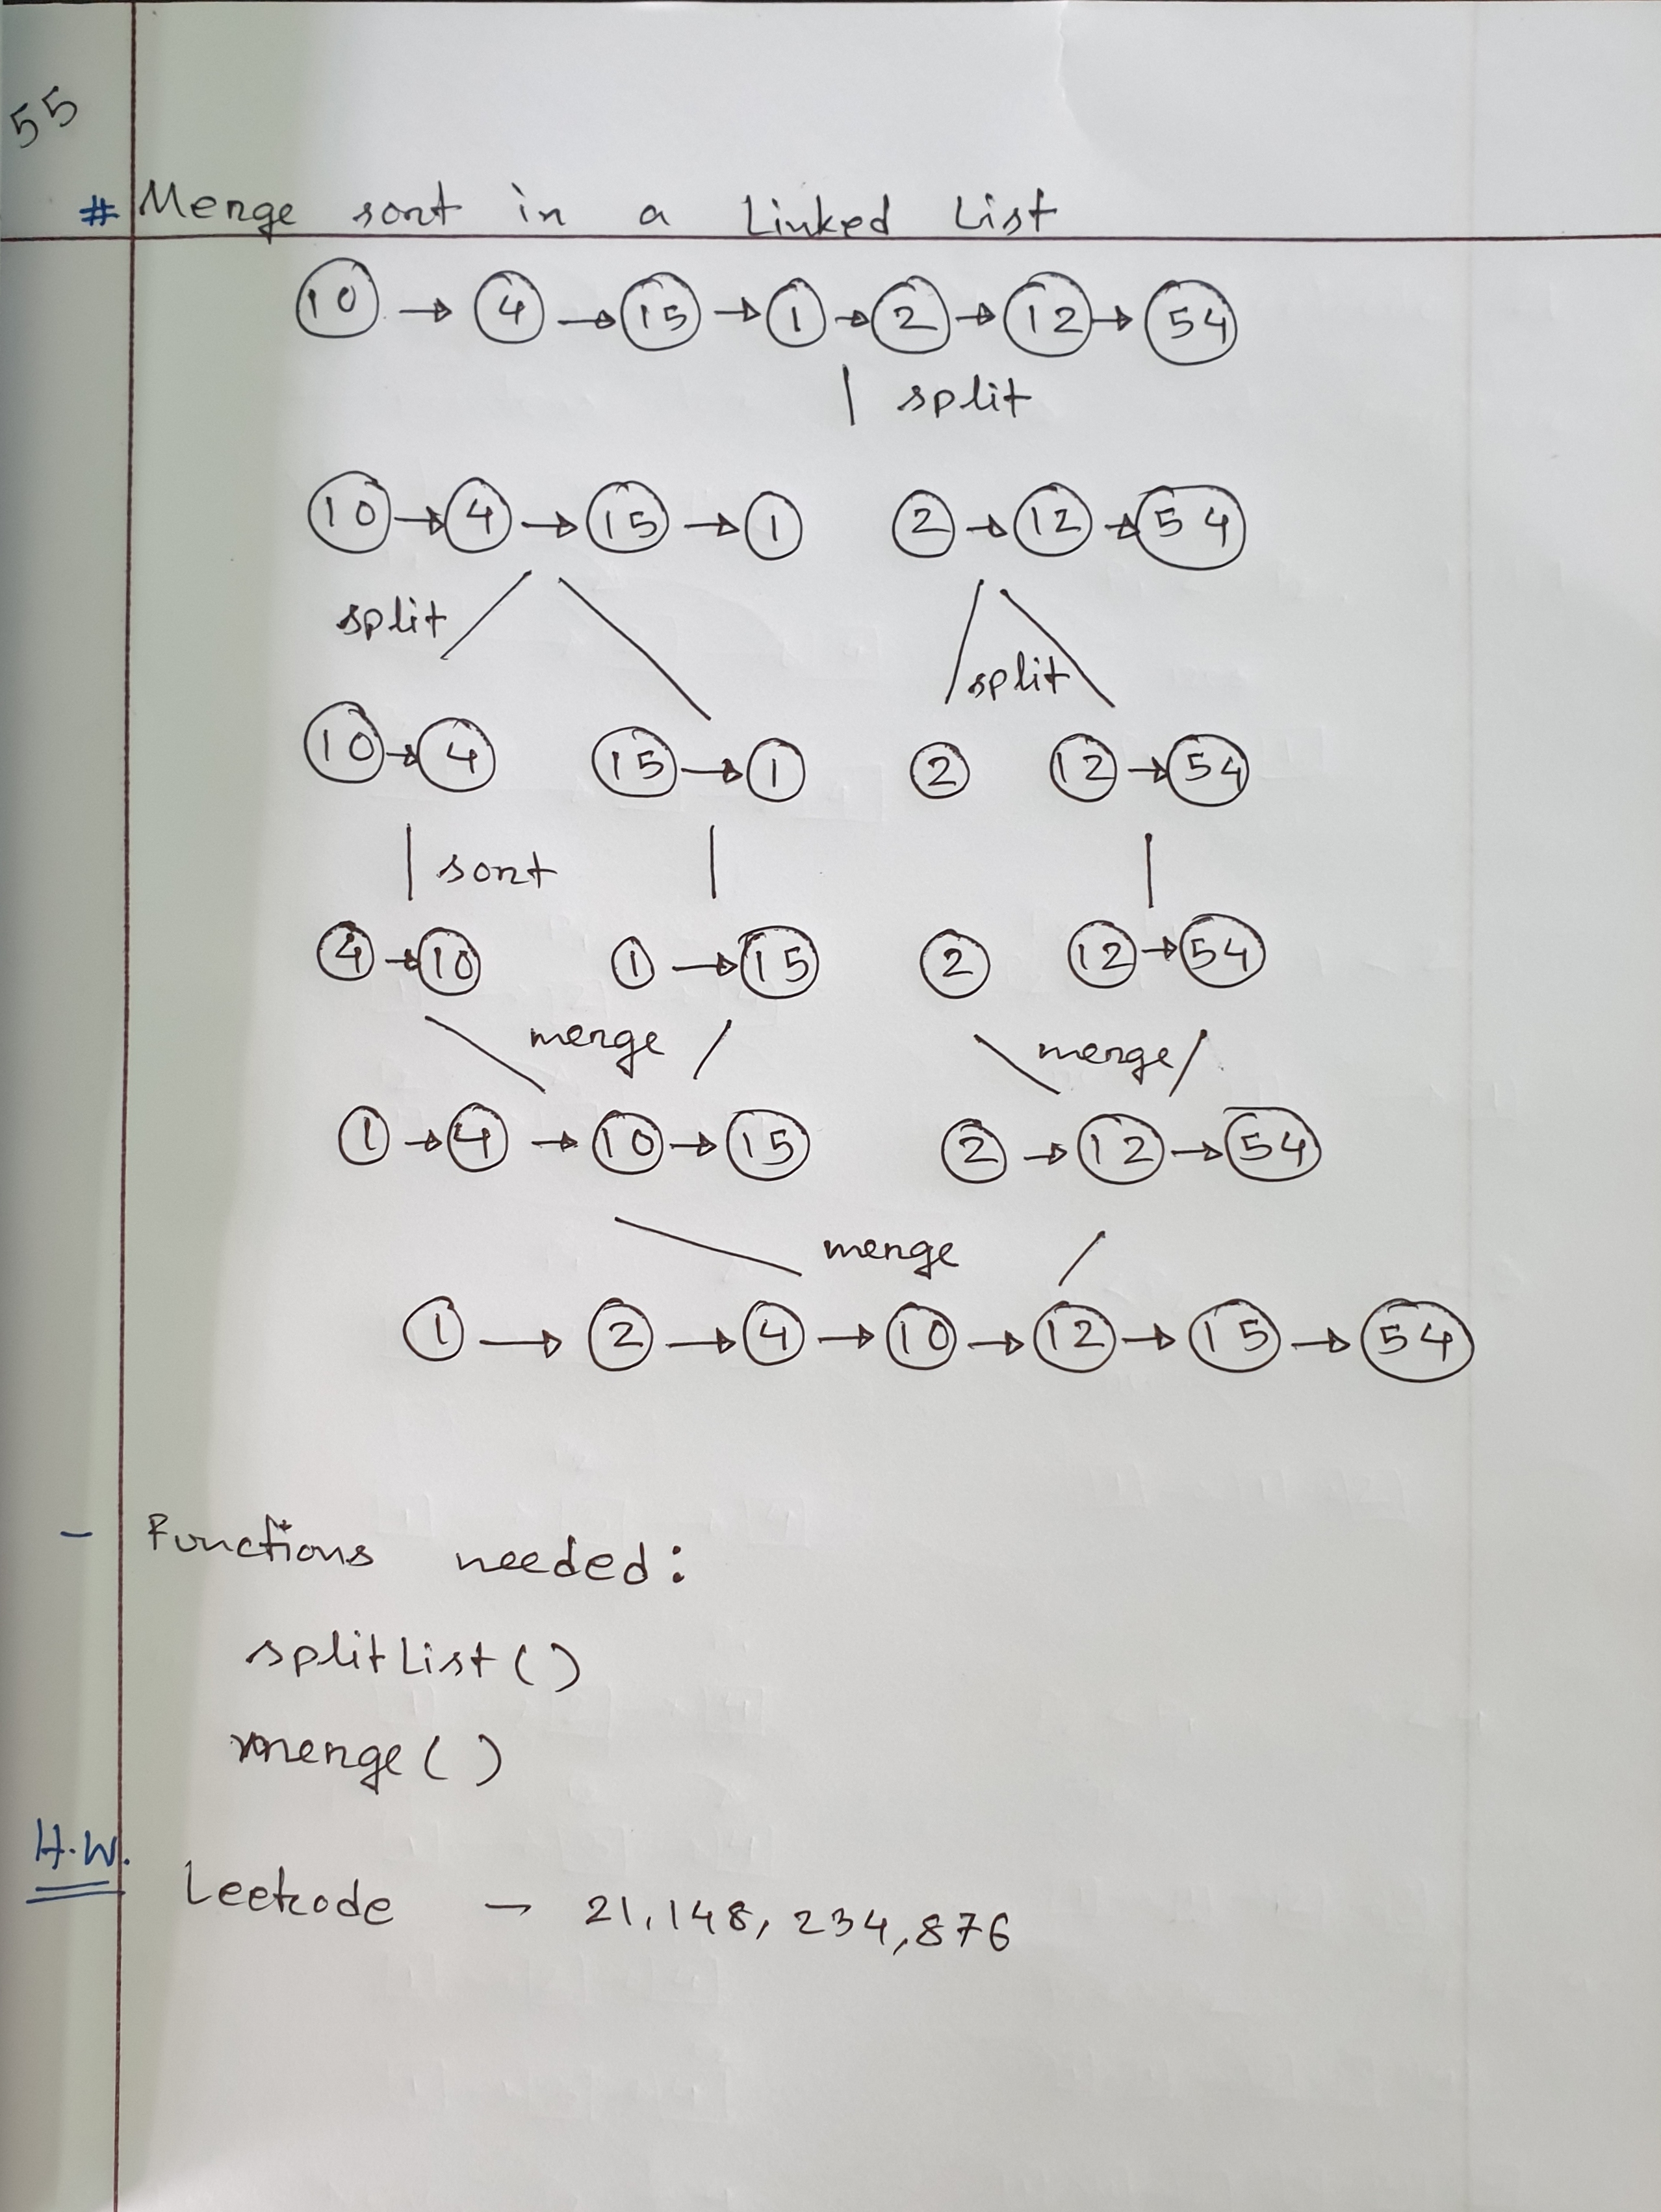 55
# Merge sort in a Linked List
10 → 4 → 15 → 1 → 2 → 12 → 54
split
10 → 4 → 15 → 1 2 → 12 → 54
split split
10 → 4 15 → 1 2 12 → 54
sort
4 → 10 1 → 15 2 12 → 54
merge merge
1 → 4 → 10 → 15 2 → 12 → 54
merge
1 → 2 → 4 → 10 → 12 → 15 → 54
- Functions needed:
splitList()
merge()
H.W.
Leetcode - 21, 148, 234, 876